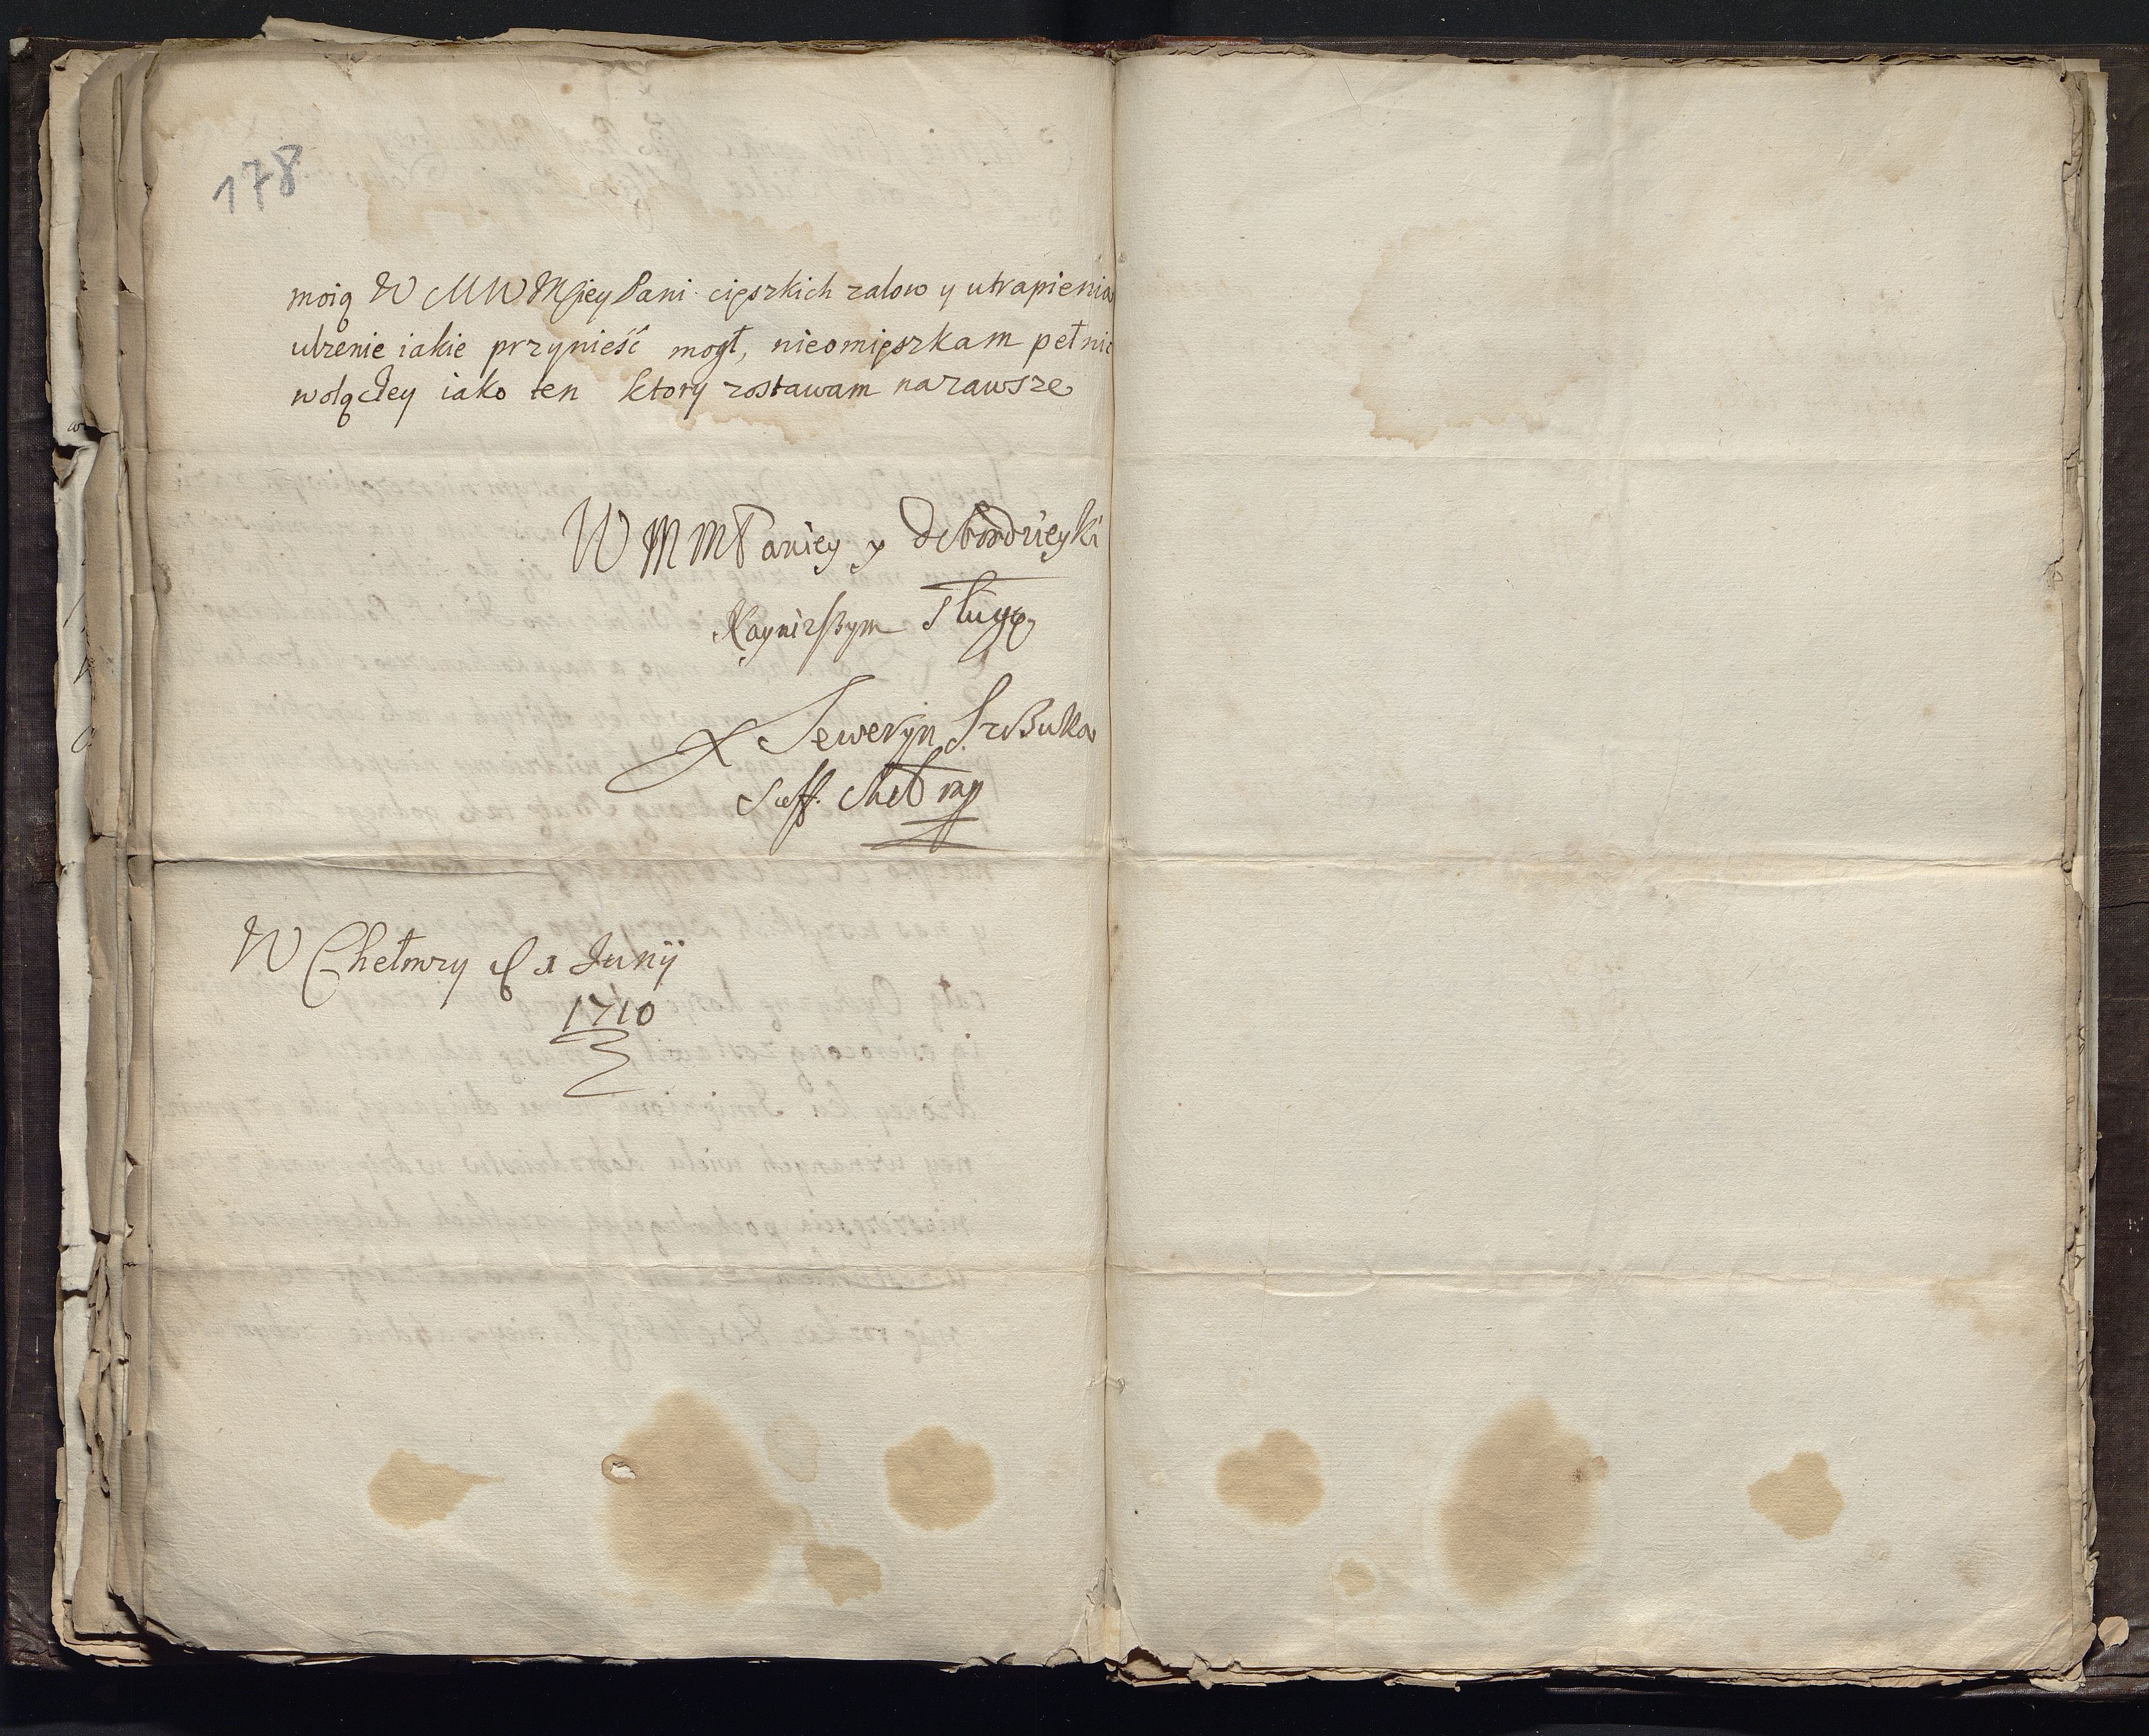 178
moią W MMWMPiey Pani cięszkich zalow y utrapienia
ulzenie iakie przynieść mogł, nieomięszkam pełnic
wolą Jey iako ten ktory zostawam nazawsze
W M M Paniey y dobrodzieyki
Nayniższym sługą
X Seweryn Szczuka
Suff. Cheł mp
W Chełmży d 1 Junij
1710